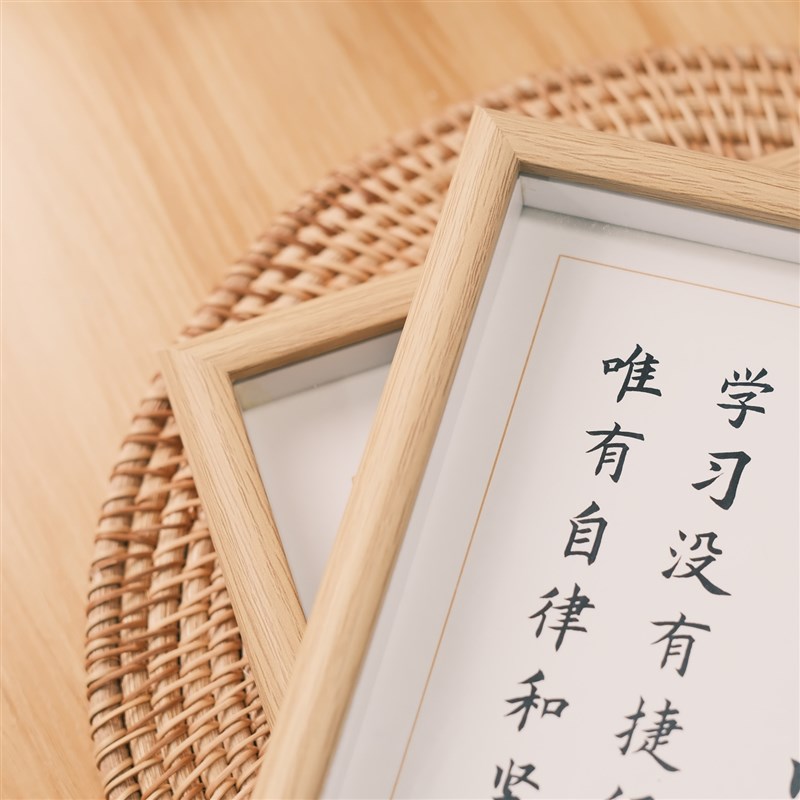 学习没有捷
唯有自律和